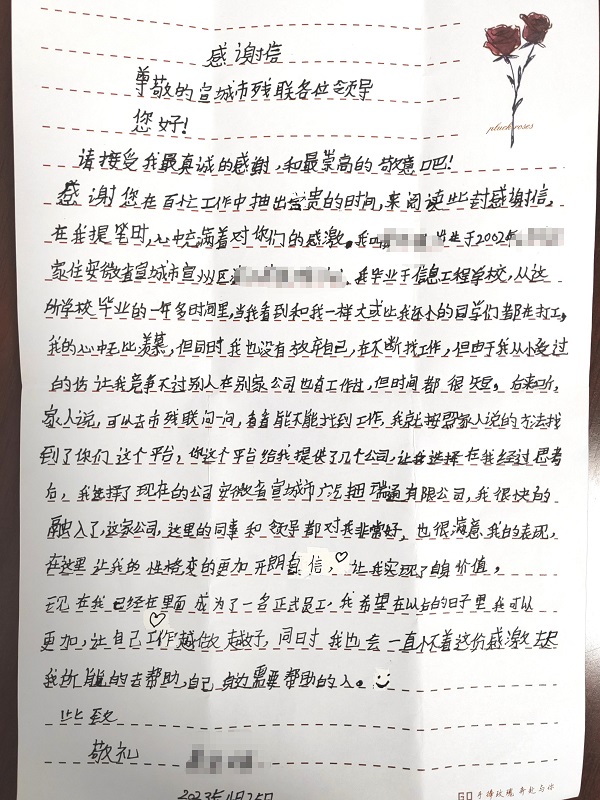 感谢信
尊敬的宣城市残联各位领导
您好!
请接受我最真诚的感谢,和最崇高的敬意吧!
感谢您在百忙工作中抽出宝贵的时间,来阅读此封感谢信,
在我提笔时,心中充满着对你们的感激。我 出生于2002年
家住安徽省宣城市宣州区 我毕业于信息工程学校,从这
所学校毕业的一年多时间里,当我看到和我一样大或比我还小的同学们都在打工,
我的心中无比羡慕,但同时我也没有放弃自己,在不断找工作,但由于我从小受过
的伤让我竞争不过别人在别家公司也有工作过,但时间都很短。后来听,
家人说,可以去市残联问一问,看看能不能找到工作,我就按照家人说的方法找
到了你们这个平台,你这个平台给我提供了几个公司,让我选择在我经过思考
后,我选择了现在的公司安徽省宣城市广汽 瑞通有限公司,我很快的
融入了,这家公司,这里的同事和领导都对我非常好,也很满意我的表现,
在这里让我的性格变的更加开朗自信,♡让我实现了自身价值,
现在我已经在里面成为了一名正式员工,我希望在以后的日子里我可以
更加,让自己工作越做越好,同时我也会一直怀着这份感激去尽
我所能的去帮助,自己身边需要帮助的人。
此致
敬礼
2023年 月25日
pluck roses
GO 手捧玫瑰 奔赴与你